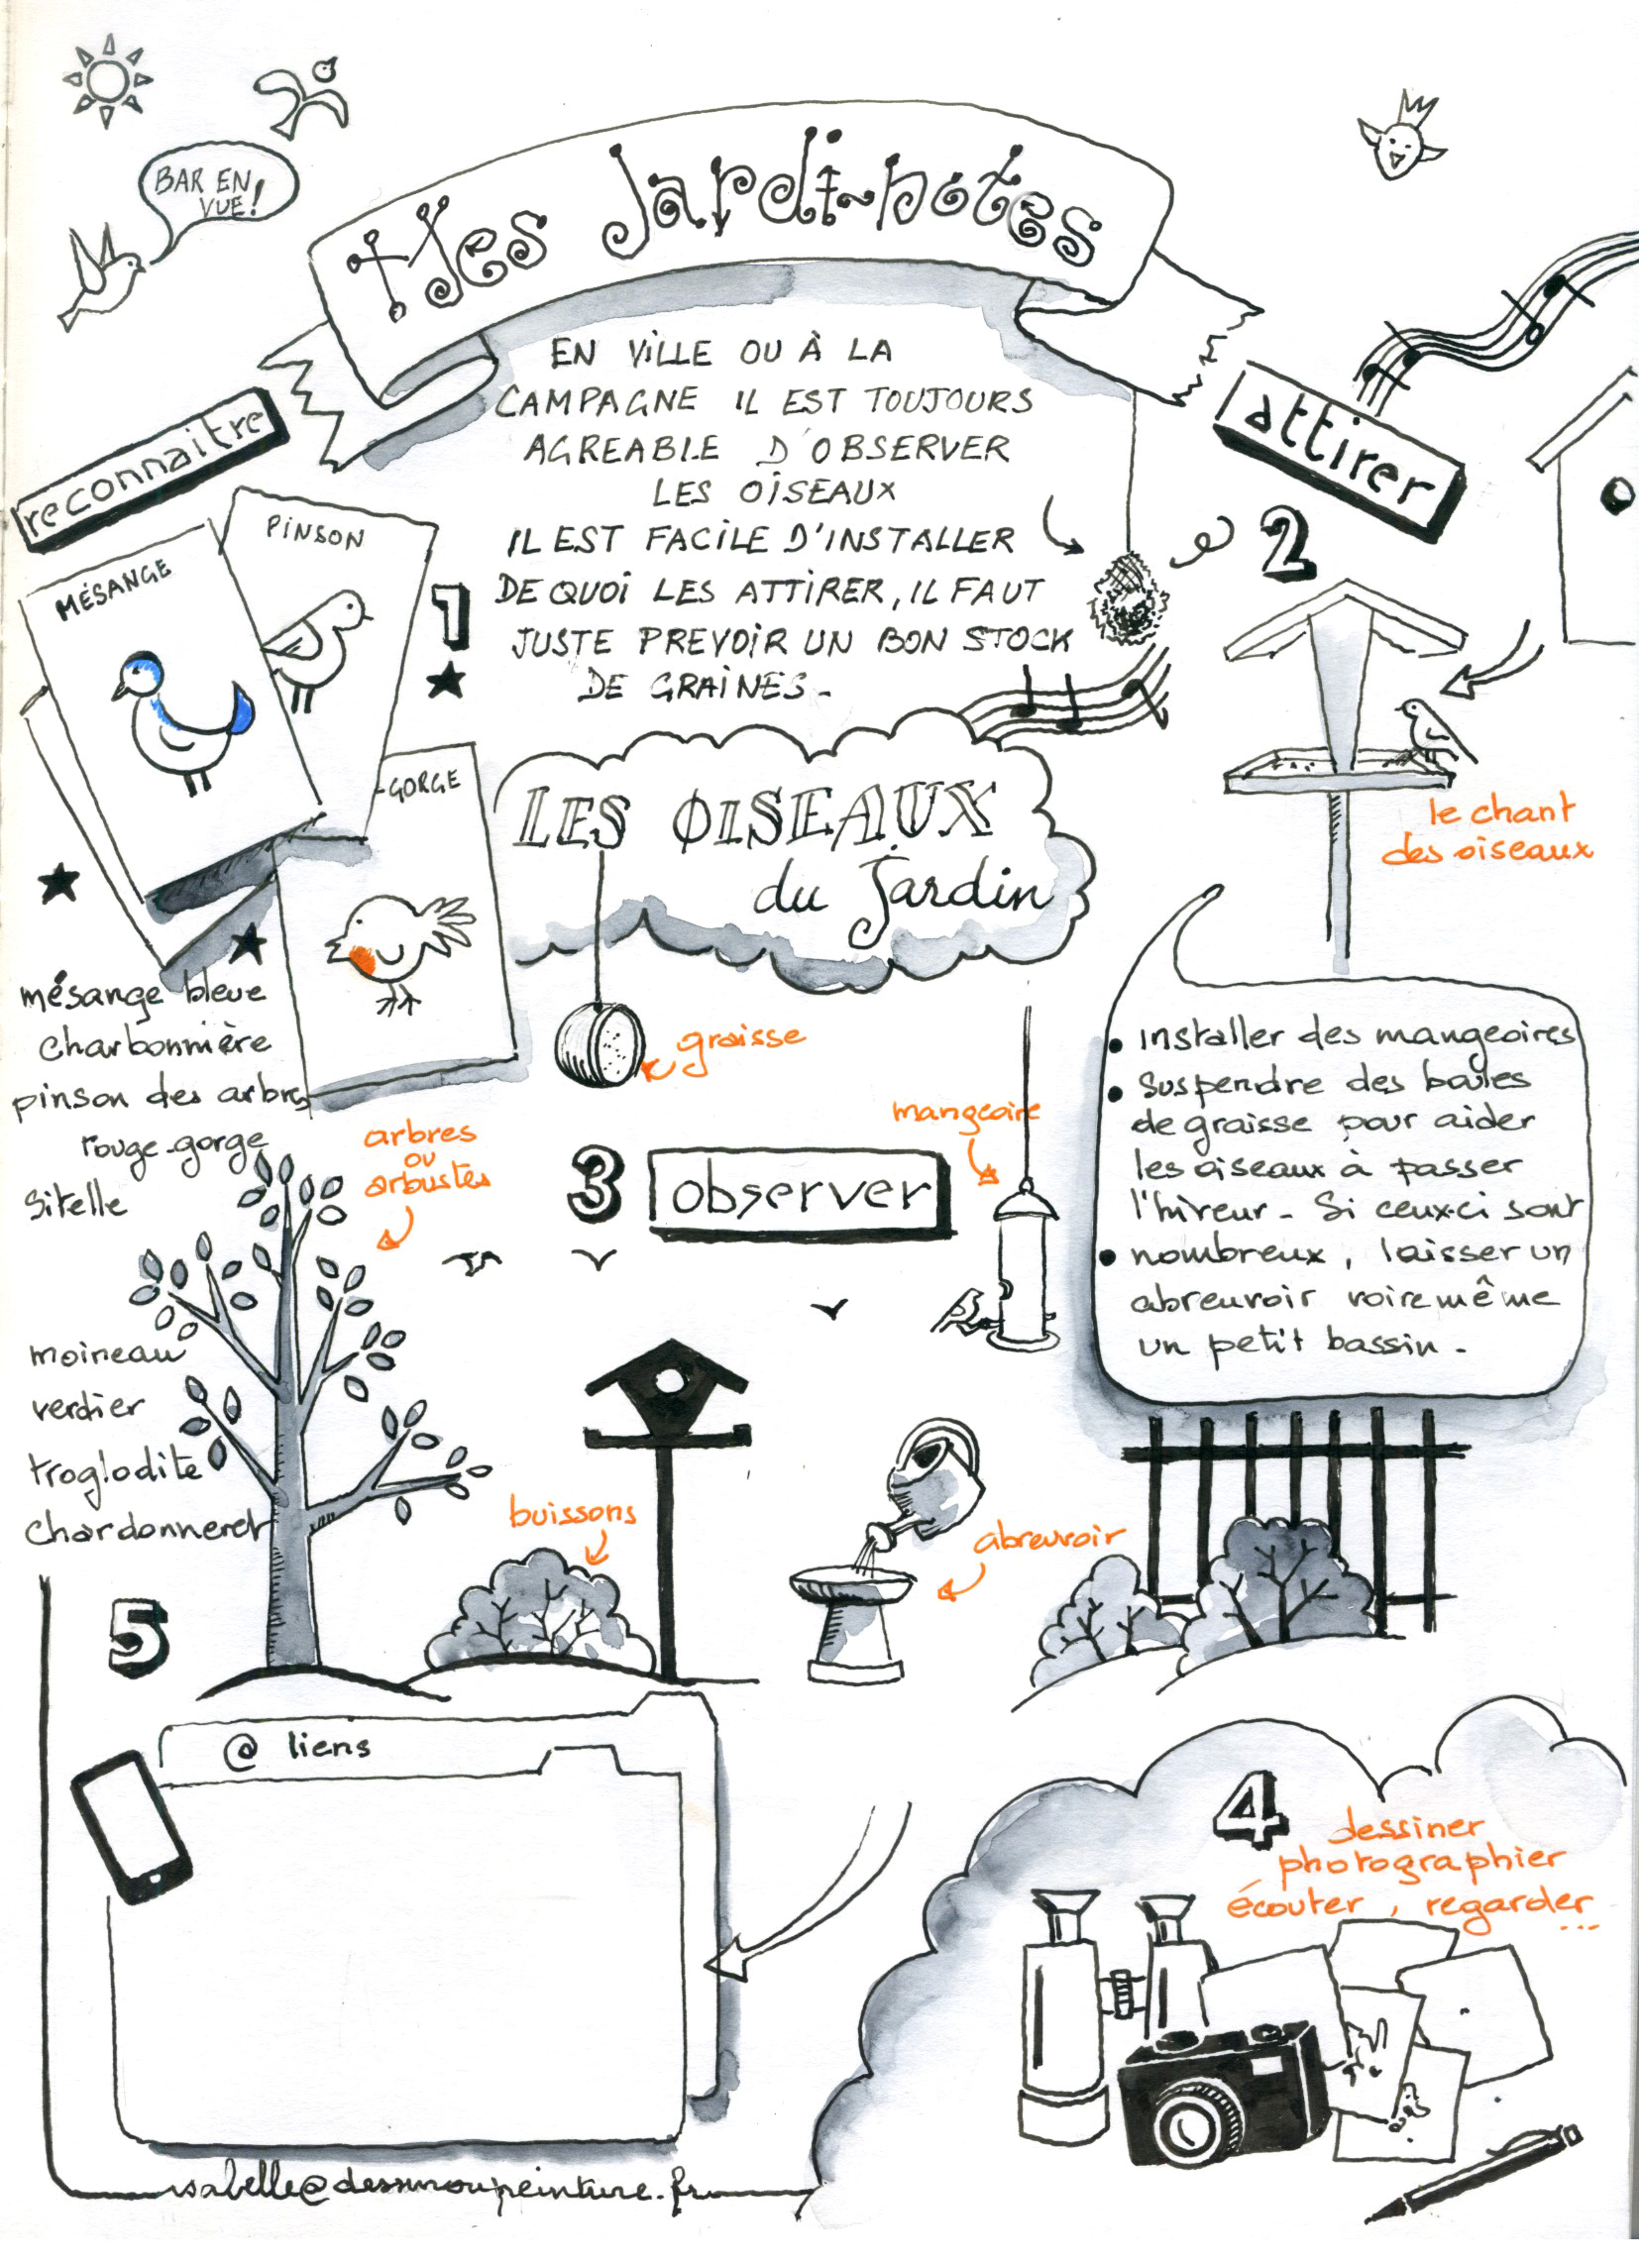 BAR EN
VUE!
Mes Jardi-notes
EN VILLE OU À LA
CAMPAGNE IL EST TOUJOURS
AGREABLE D'OBSERVER
LES OISEAUX
IL EST FACILE D'INSTALLER
DE QUOI LES ATTIRER, IL FAUT
JUSTE PREVOIR UN BON STOCK
DE GRAINES-
reconnaitre
1
MÉSANGE
PINSON
-GORGE
LES OISEAUX
du Jardin
mésange bleue
charbonnière
pinson des arbres
rouge-gorge
Sitelle
moineau
verdier
troglodite
chardonneret
attirer
2
le chant
des oiseaux
• installer des mangeoires
• suspendre des boules
de graisse pour aider
les oiseaux à passer
l'hiver - Si ceux-ci sont
• nombreux, laisser un
abreuvoir voire même
un petit bassin.
graisse
mangeoire
arbres
ou
arbustes
3
observer
buissons
abreuvoir
4
dessiner
photographier
écouter, regarder
...
5
@ liens
isabelle@dessinoupeinture.fr